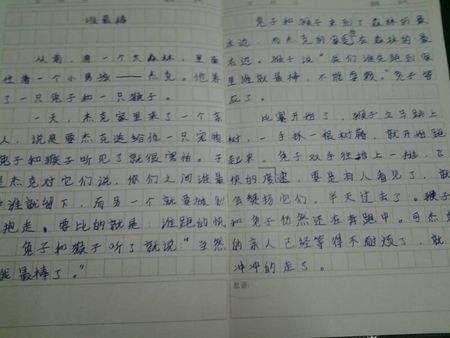 谁最棒
从前，有一个大森林，里面
住着一个小男孩——杰克。他养
了一只兔子和一只猴子。
一天，杰克家里来了一个客
人，说是要杰克送给他一只宠物
兔子和猴子听见了就很害怕。于
是杰克对它们说，你们之间谁最
棒谁就留下，而另一个就要被别
抱走。要比的就是：谁跑的快
兔子和猴子听了就说"当然
我最棒了。"
兔子和猴子来到了森林的最
末边，而杰克的家是在森林的最
末边。猴子说"我们谁先跑到家
里谁就最棒，不能食数。"兔子答
应了。
比赛开始了，猴子立马跳上
树，一手抓一根树藤，就开始跑
起来，兔子双手往路上一
快的 要是有人看见了，
会赞扬它们，半天过去了。猴子
和兔子仍然还在奔跑中。可杰克
的亲人已经等得不耐烦了，就
冲冲的走了。